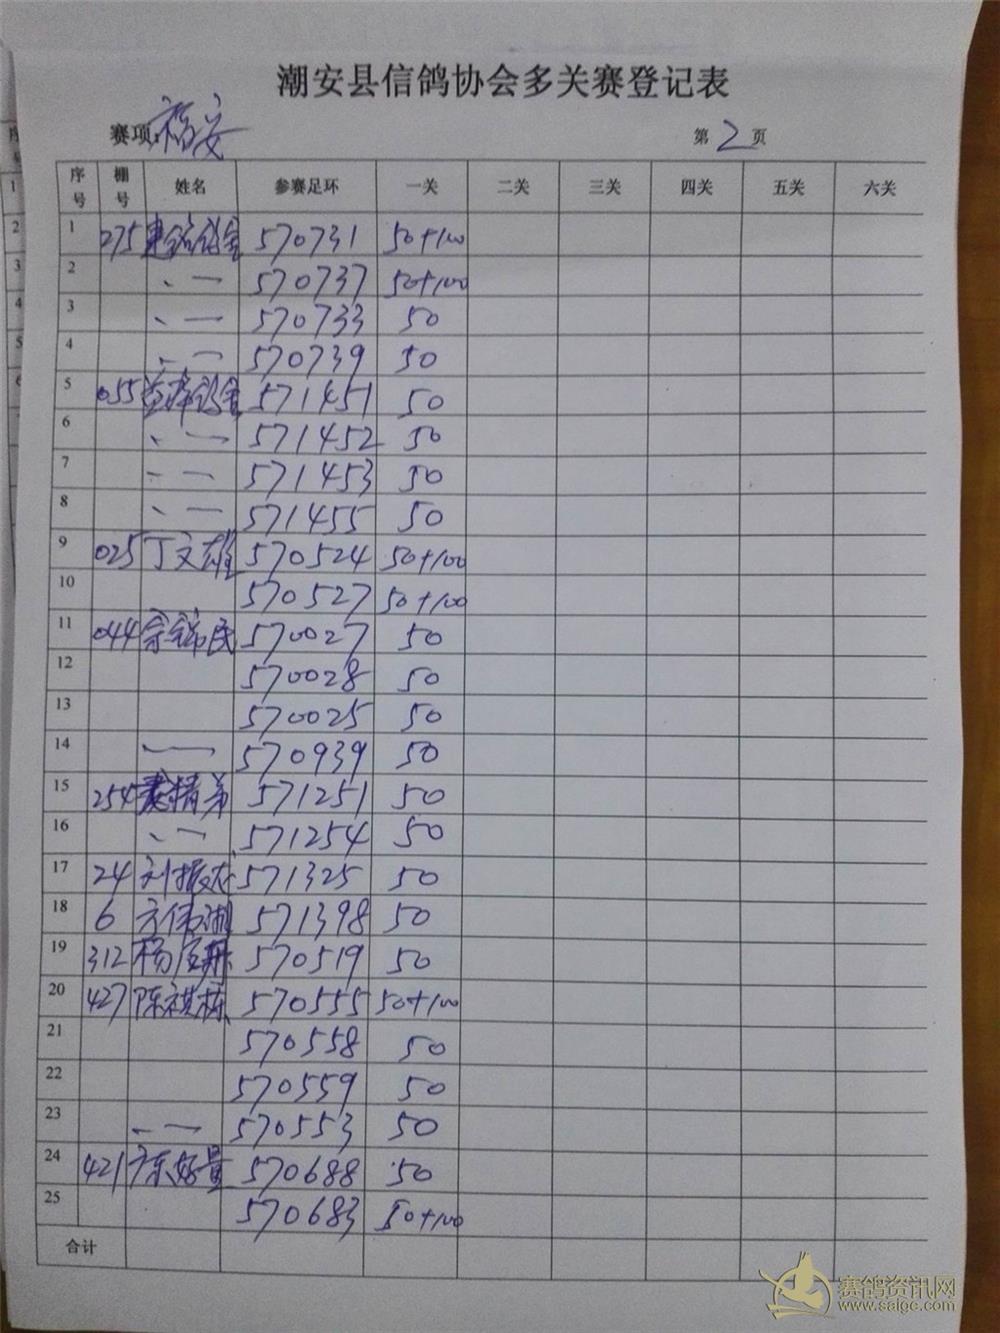 潮安县信鸽协会多关赛登记表
赛项:福安 第2页
序号 棚号 姓名 参赛足环 一关 二关 三关 四关 五关 六关
1 275 570731 50+100
2 、一 570737 50+100
3 、一 570733 50
4 、一 570739 50
5 055 571451 50
6 、一 571452 50
7 、一 571453 50
8 、一 571455 50
9 025 丁文雄 570524 50+100
10 570527 50+100
11 044 锦民 570027 50
12 570028 50
13 570025 50
14 一 570939 50
15 254 571251 50
16 、一 571254 50
17 24 刘振农 571325 50
18 6 方伟湖 571398 50
19 312 杨 570519 50
20 427 陈祺栋 570555 50+100
21 570558 50
22 570559 50
23 、一 570553 50
24 421 570688 50
25 570683 50+100
合计
赛鸽资讯网
www.saigc.com